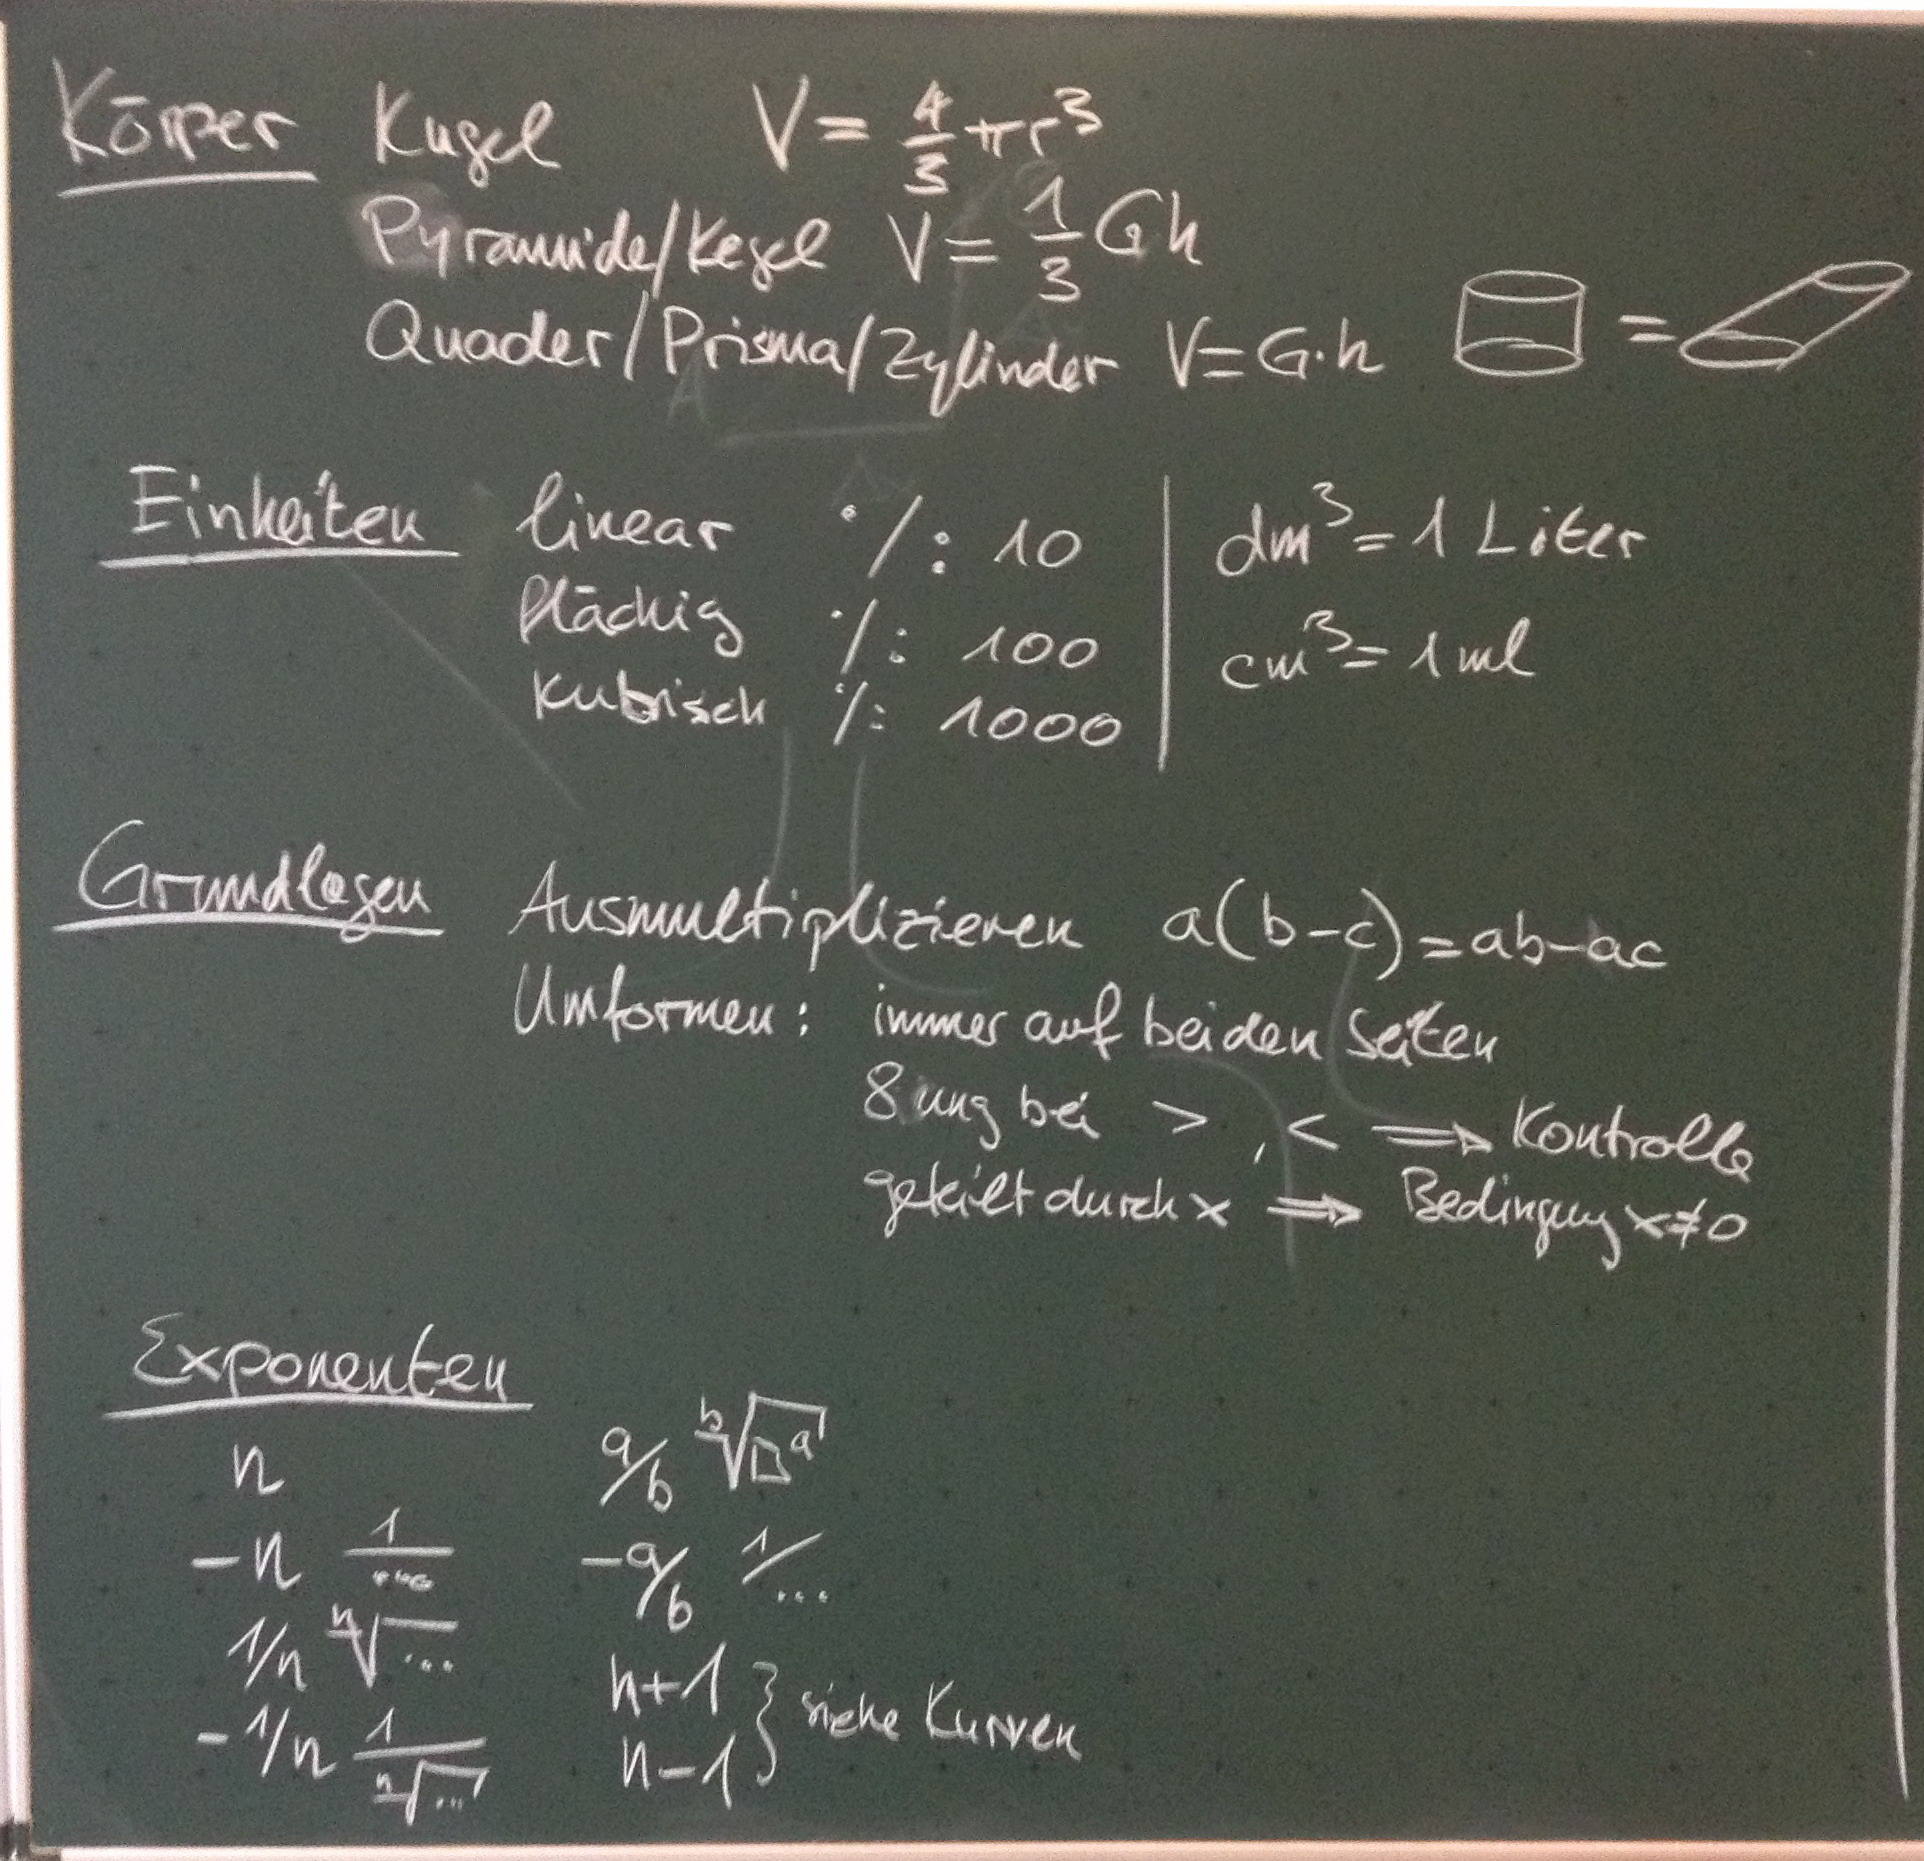 Körper Kugel V = 4/3 πr³
Pyramide/Kegel V = 1/3 Gh
Quader/Prisma/Zylinder V = G·h =
Einheiten linear ·/: 10 dm³ = 1 Liter
flächig ·/: 100 cm³ = 1 ml
kubisch ·/: 1000
Grundlagen Ausmultiplizieren a(b-c) = ab-ac
Umformen: immer auf beiden Seiten
8ung bei >, < ⇒ Kontrolle
geteilt durch x ⇒ Bedingung x≠0
Exponenten
n a/b ᵇ√□ᵃ
-n 1/... -a/b 1/...
1/n ⁿ√... n+1
-1/n 1/ⁿ√... n-1 } siehe Kurven